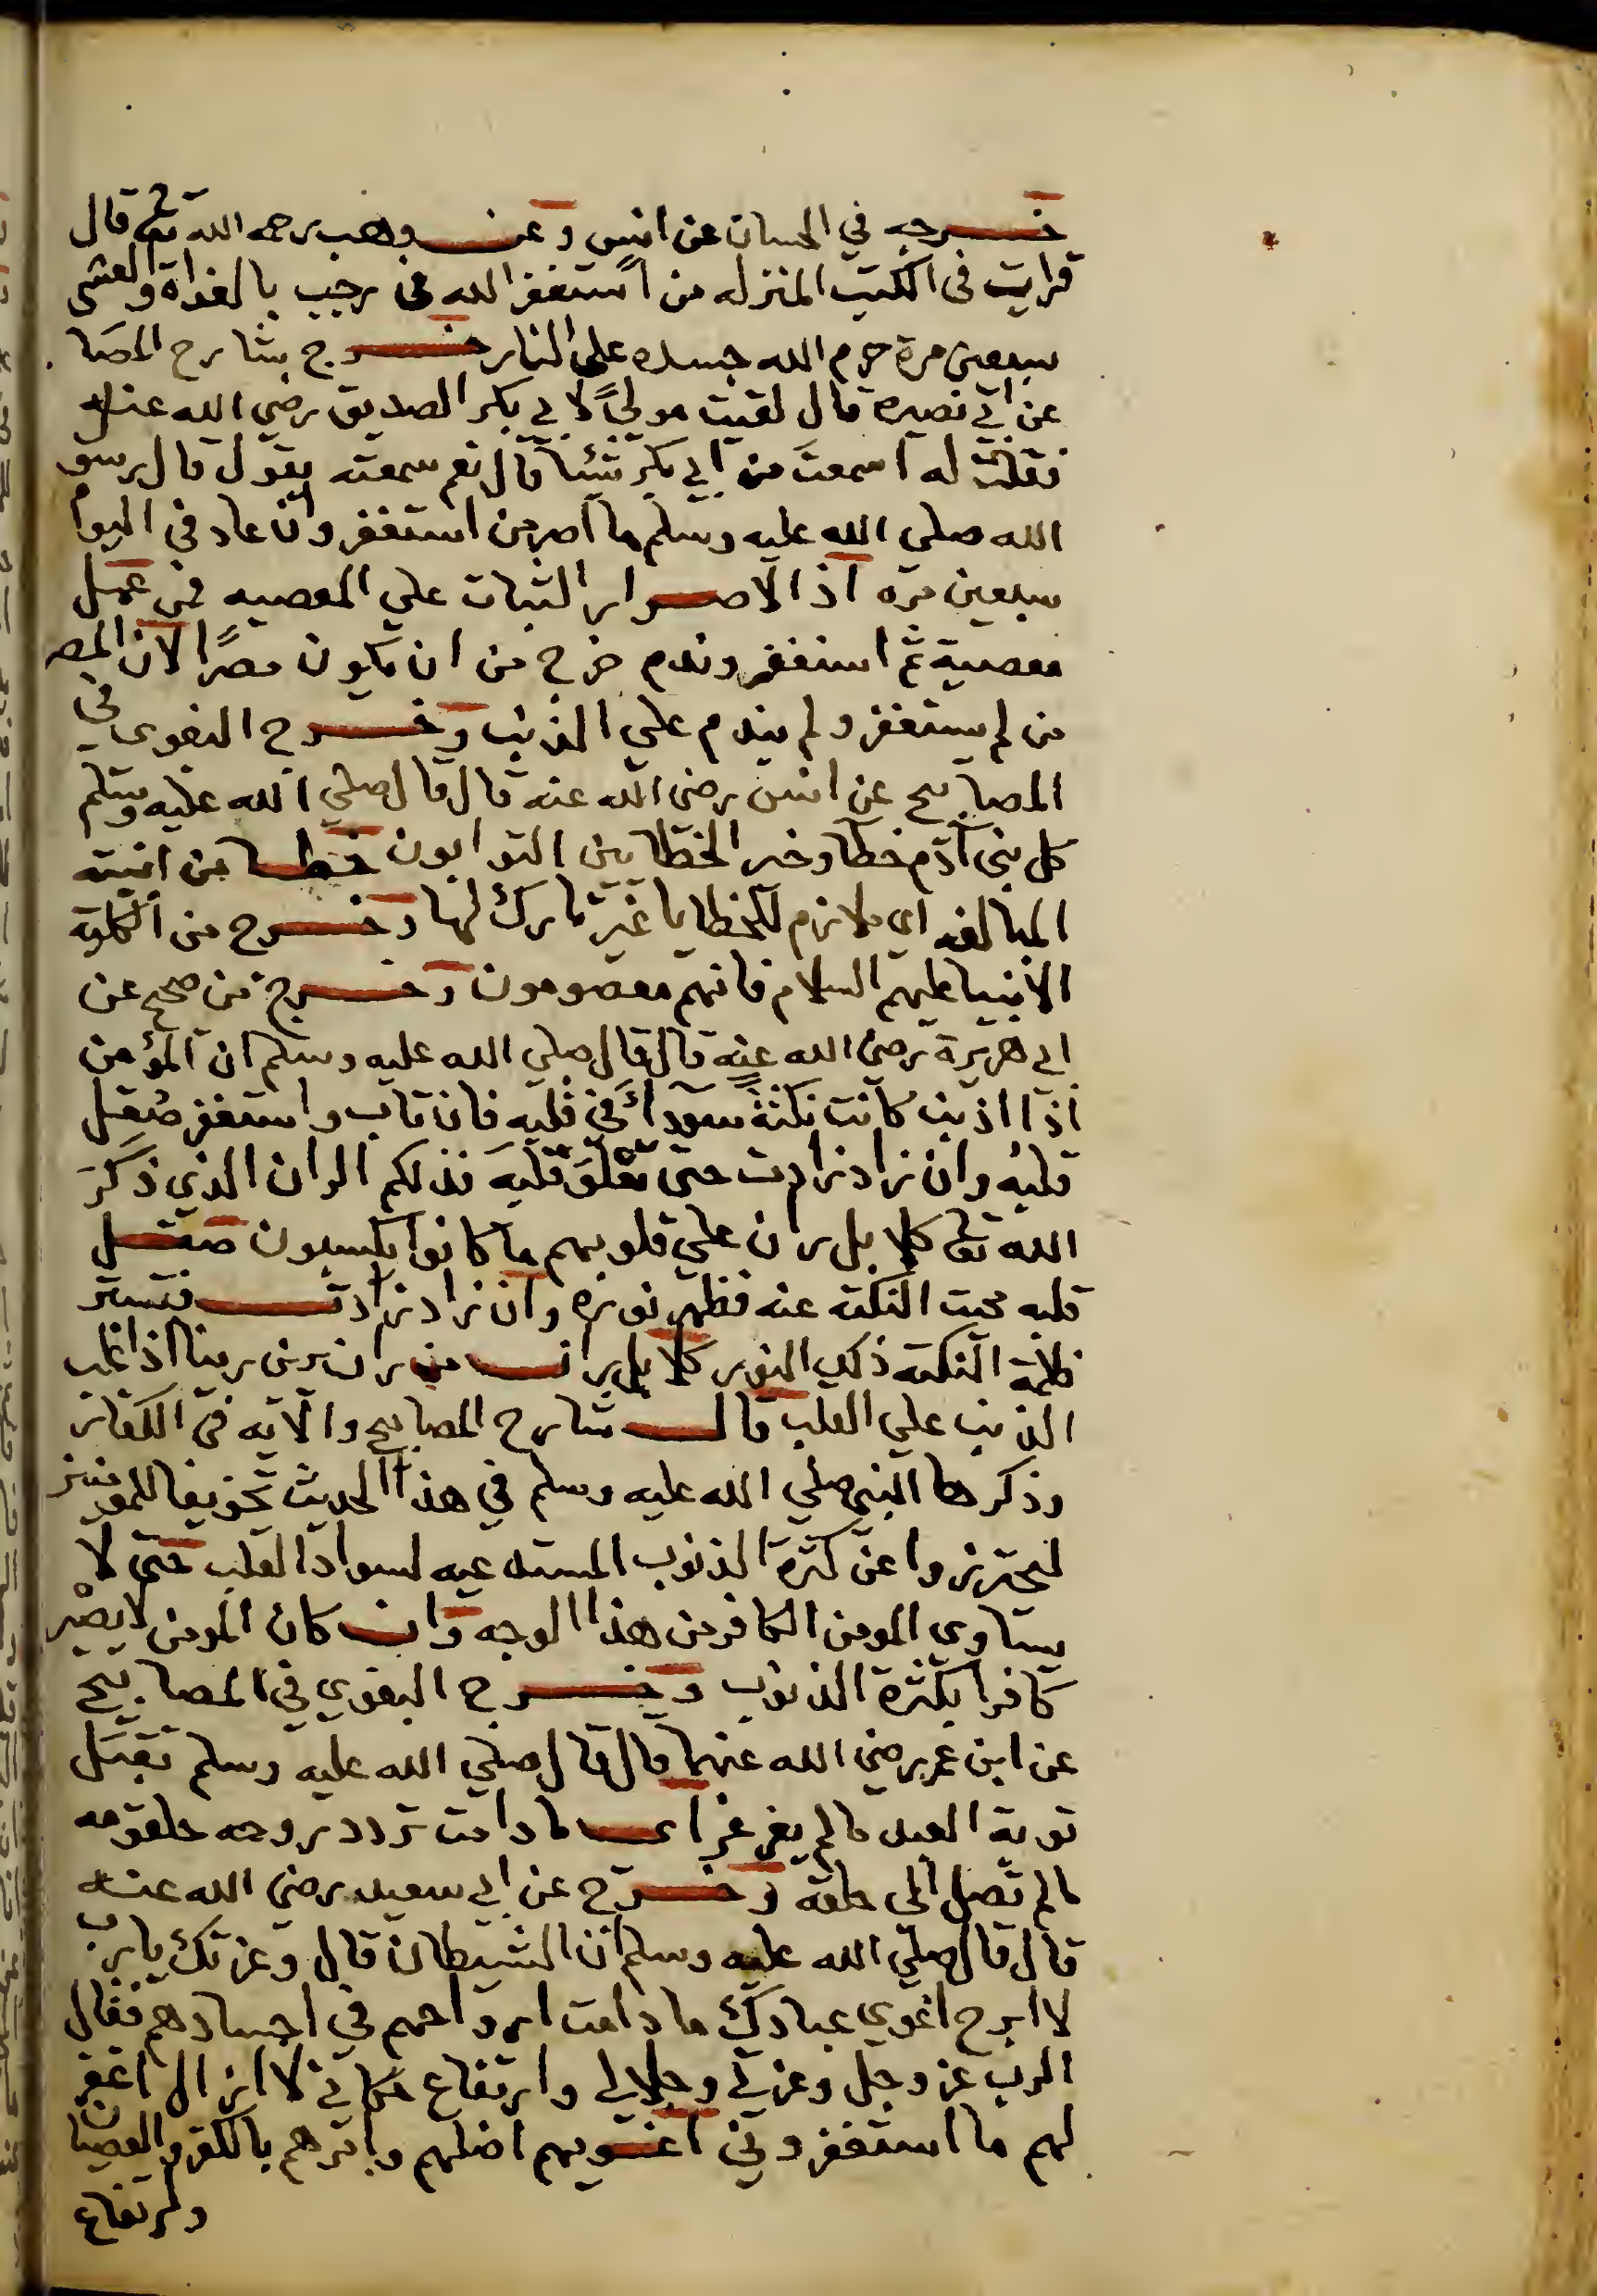 خرجه في الحسان عن انس وعن وهب رحمه الله تعالى قال
قرات في الكتب المنزله من استغفر الله في رجب بالغداة والعشى
سبعين مرة حرم الله جسده على النار خرج شارح المصا
عن ابي نصيره قال لقيت مولىً لابي بكر الصديق رضي الله عنه
فقلت له اسمعتَ من ابي بكر شيئا قال نعم سمعته يقول قال رسو
الله صلي الله عليه وسلم ما اصر من استغفر وان عاد في اليوم
سبعين مره اذ الاصرار الثبات علي المعصيه فمن عمل
معصية ثم استغفر وندم خرج من ان يكون مصرًا لان المصر
من لم يستغفر ولم يندم علي الذنب وخرج البغوى في
المصابيح عن انس رضى الله عنه قال قال صلي الله عليه وسلم
كل بني آدم خطا وخير الخطايين التوابون خطا من ابنية
المبالغه اي ملازم للخطايا غير تارك لها وخرج من الكلية
الانبيا عليهم السلام فانهم معصومون وخرج من صحح عن
ابي هريرة رضى الله عنه قال قال صلي الله عليه وسلم ان المؤمن
اذا اذنب كانت نكتةً سوداً في قلبه فان تاب واستغفر صُقل
قلبُه وان زاد زادت حتى تعْلوَ قلبَه فذلكم الران الذي ذكَرَ
الله تعالى كلا بل ران علي قلوبهم ما كانوا يكسبون صقل
قلبه محيت النكته عنه فظهر نوره وان زاد زادت فتستر
ظلمة النكته ذلك النور كلا بل ران من ران يرين رينا اذا غلب
الذنب علي القلب قال شارح المصابيح والآيه في الكفار
وذكرها النبي صلي الله عليه وسلم في هذا الحديث تخويفا للمومنين
ليحترزوا عن كثرة الذنوب المستدعيه لسواد القلب حتى لا
يساوي المومن الكافر من هذا الوجه وان كان المومن لا يصْير
كافرا بكثرة الذنوب وخرج البغوي في المصابيح
عن ابن عمر رضي الله عنهما قال قال صلي الله عليه وسلم تقبَل
توبة العبد ما لم يغرغر اى ما دامت تردد روحه حلقومه
ما لم تصل الى حلقه وخرج عن ابي سعيد رضي الله عنه
قال قال صلي الله عليه وسلم ان الشيطان قال وعزتك يا رب
لا ابرح اغوي عبادك ما دامت ارواحهم في اجسادهم فقال
الرب عز وجل وعزتي وجلالي وارتفاع مكاني لا ازال اغفر
لهم ما استغفروني اغويهم اضلهم وامرهم بالكفر والعصيان
وارتفاع